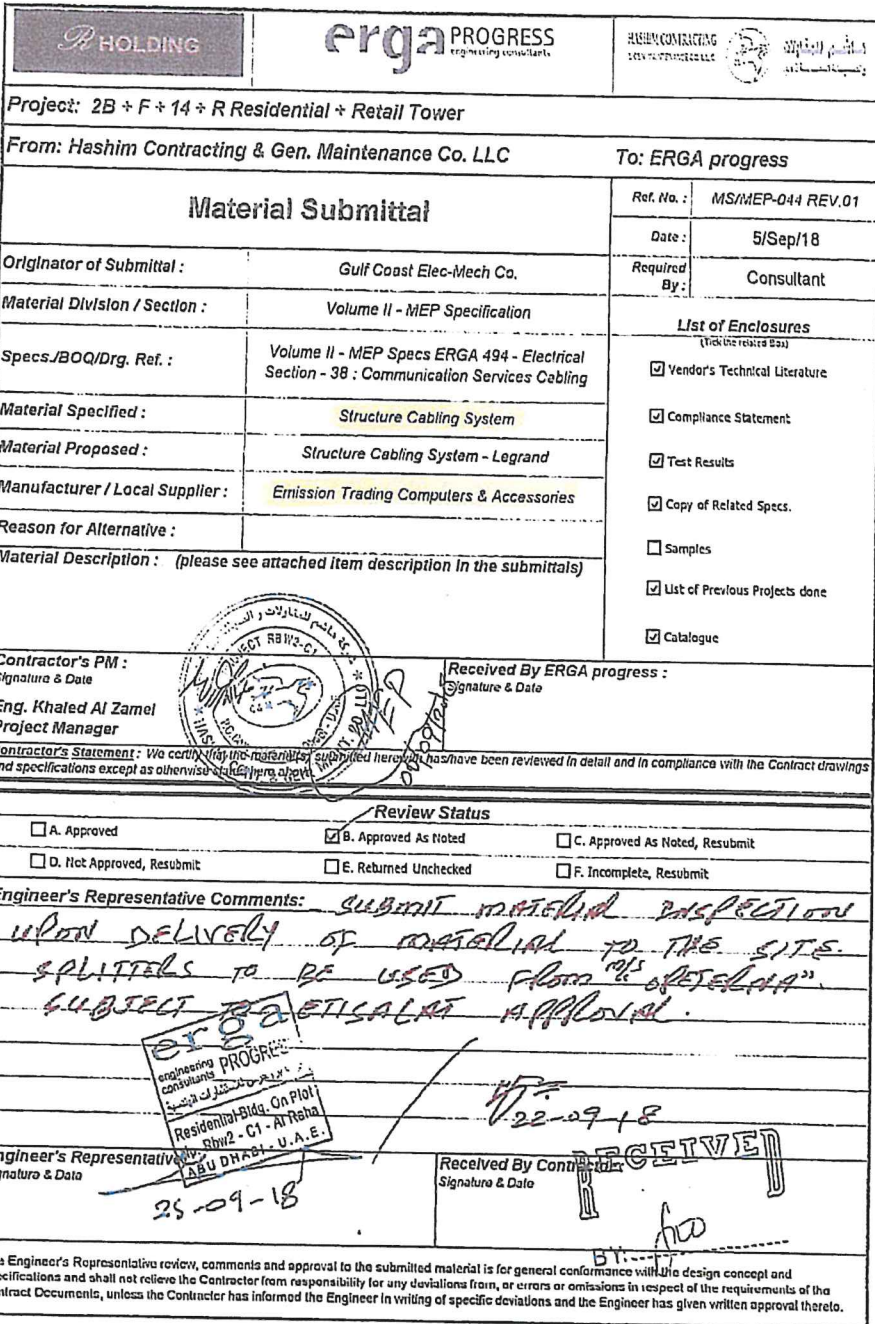 R HOLDING
erga PROGRESS
engineering consultants
HASHIM CONTRACTING
Project: 2B + F + 14 + R Residential + Retail Tower
From: Hashim Contracting & Gen. Maintenance Co. LLC
To: ERGA progress
Material Submittal
Ref. No. : MS/MEP-044 REV.01
Date : 5/Sep/18
Required By : Consultant
Originator of Submittal : Gulf Coast Elec-Mech Co.
Material Division / Section : Volume II - MEP Specification
Specs./BOQ/Drg. Ref. : Volume II - MEP Specs ERGA 494 - Electrical
Section - 38 : Communication Services Cabling
Material Specified : Structure Cabling System
Material Proposed : Structure Cabling System - Legrand
Manufacturer / Local Supplier : Emission Trading Computers & Accessories
Reason for Alternative :
Material Description : (please see attached item description in the submittals)
List of Enclosures
(Tick the related Box)
Vendor's Technical Literature
Compliance Statement
Test Results
Copy of Related Specs.
Samples
List of Previous Projects done
Catalogue
PROJECT RBW2-C1
MEP
Contractor's PM :
Signature & Date
Eng. Khaled Al Zamel
Project Manager
Received By ERGA progress :
Signature & Date
Contractor's Statement : We certify that the material(s) submitted herewith has/have been reviewed in detail and in compliance with the Contract drawings
and specifications except as otherwise stated here above.
Review Status
A. Approved
B. Approved As Noted
C. Approved As Noted, Resubmit
D. Not Approved, Resubmit
E. Returned Unchecked
F. Incomplete, Resubmit
Engineer's Representative Comments: SUBMIT MATERIAL INSPECTION
UPON DELIVERY OF MATERIAL TO THE SITE.
SPLITTERS TO BE USED FROM M/S
SUBJECT TO ETISALAT APPROVAL.
erga
engineering consultants PROGRESS
Residential Bldg. On Plot
Rbw2 - C1 - Al Raha
ABU DHABI - U.A.E.
22-09-18
Engineer's Representative
Signature & Date
25-09-18
Received By Contractor
Signature & Date
RECEIVED
BY:
Engineer's Representative review, comments and approval to the submitted material is for general conformance with the design concept and
specifications and shall not relieve the Contractor from responsibility for any deviations from, or errors or omissions in respect of the requirements of the
Contract Documents, unless the Contractor has informed the Engineer in writing of specific deviations and the Engineer has given written approval thereto.